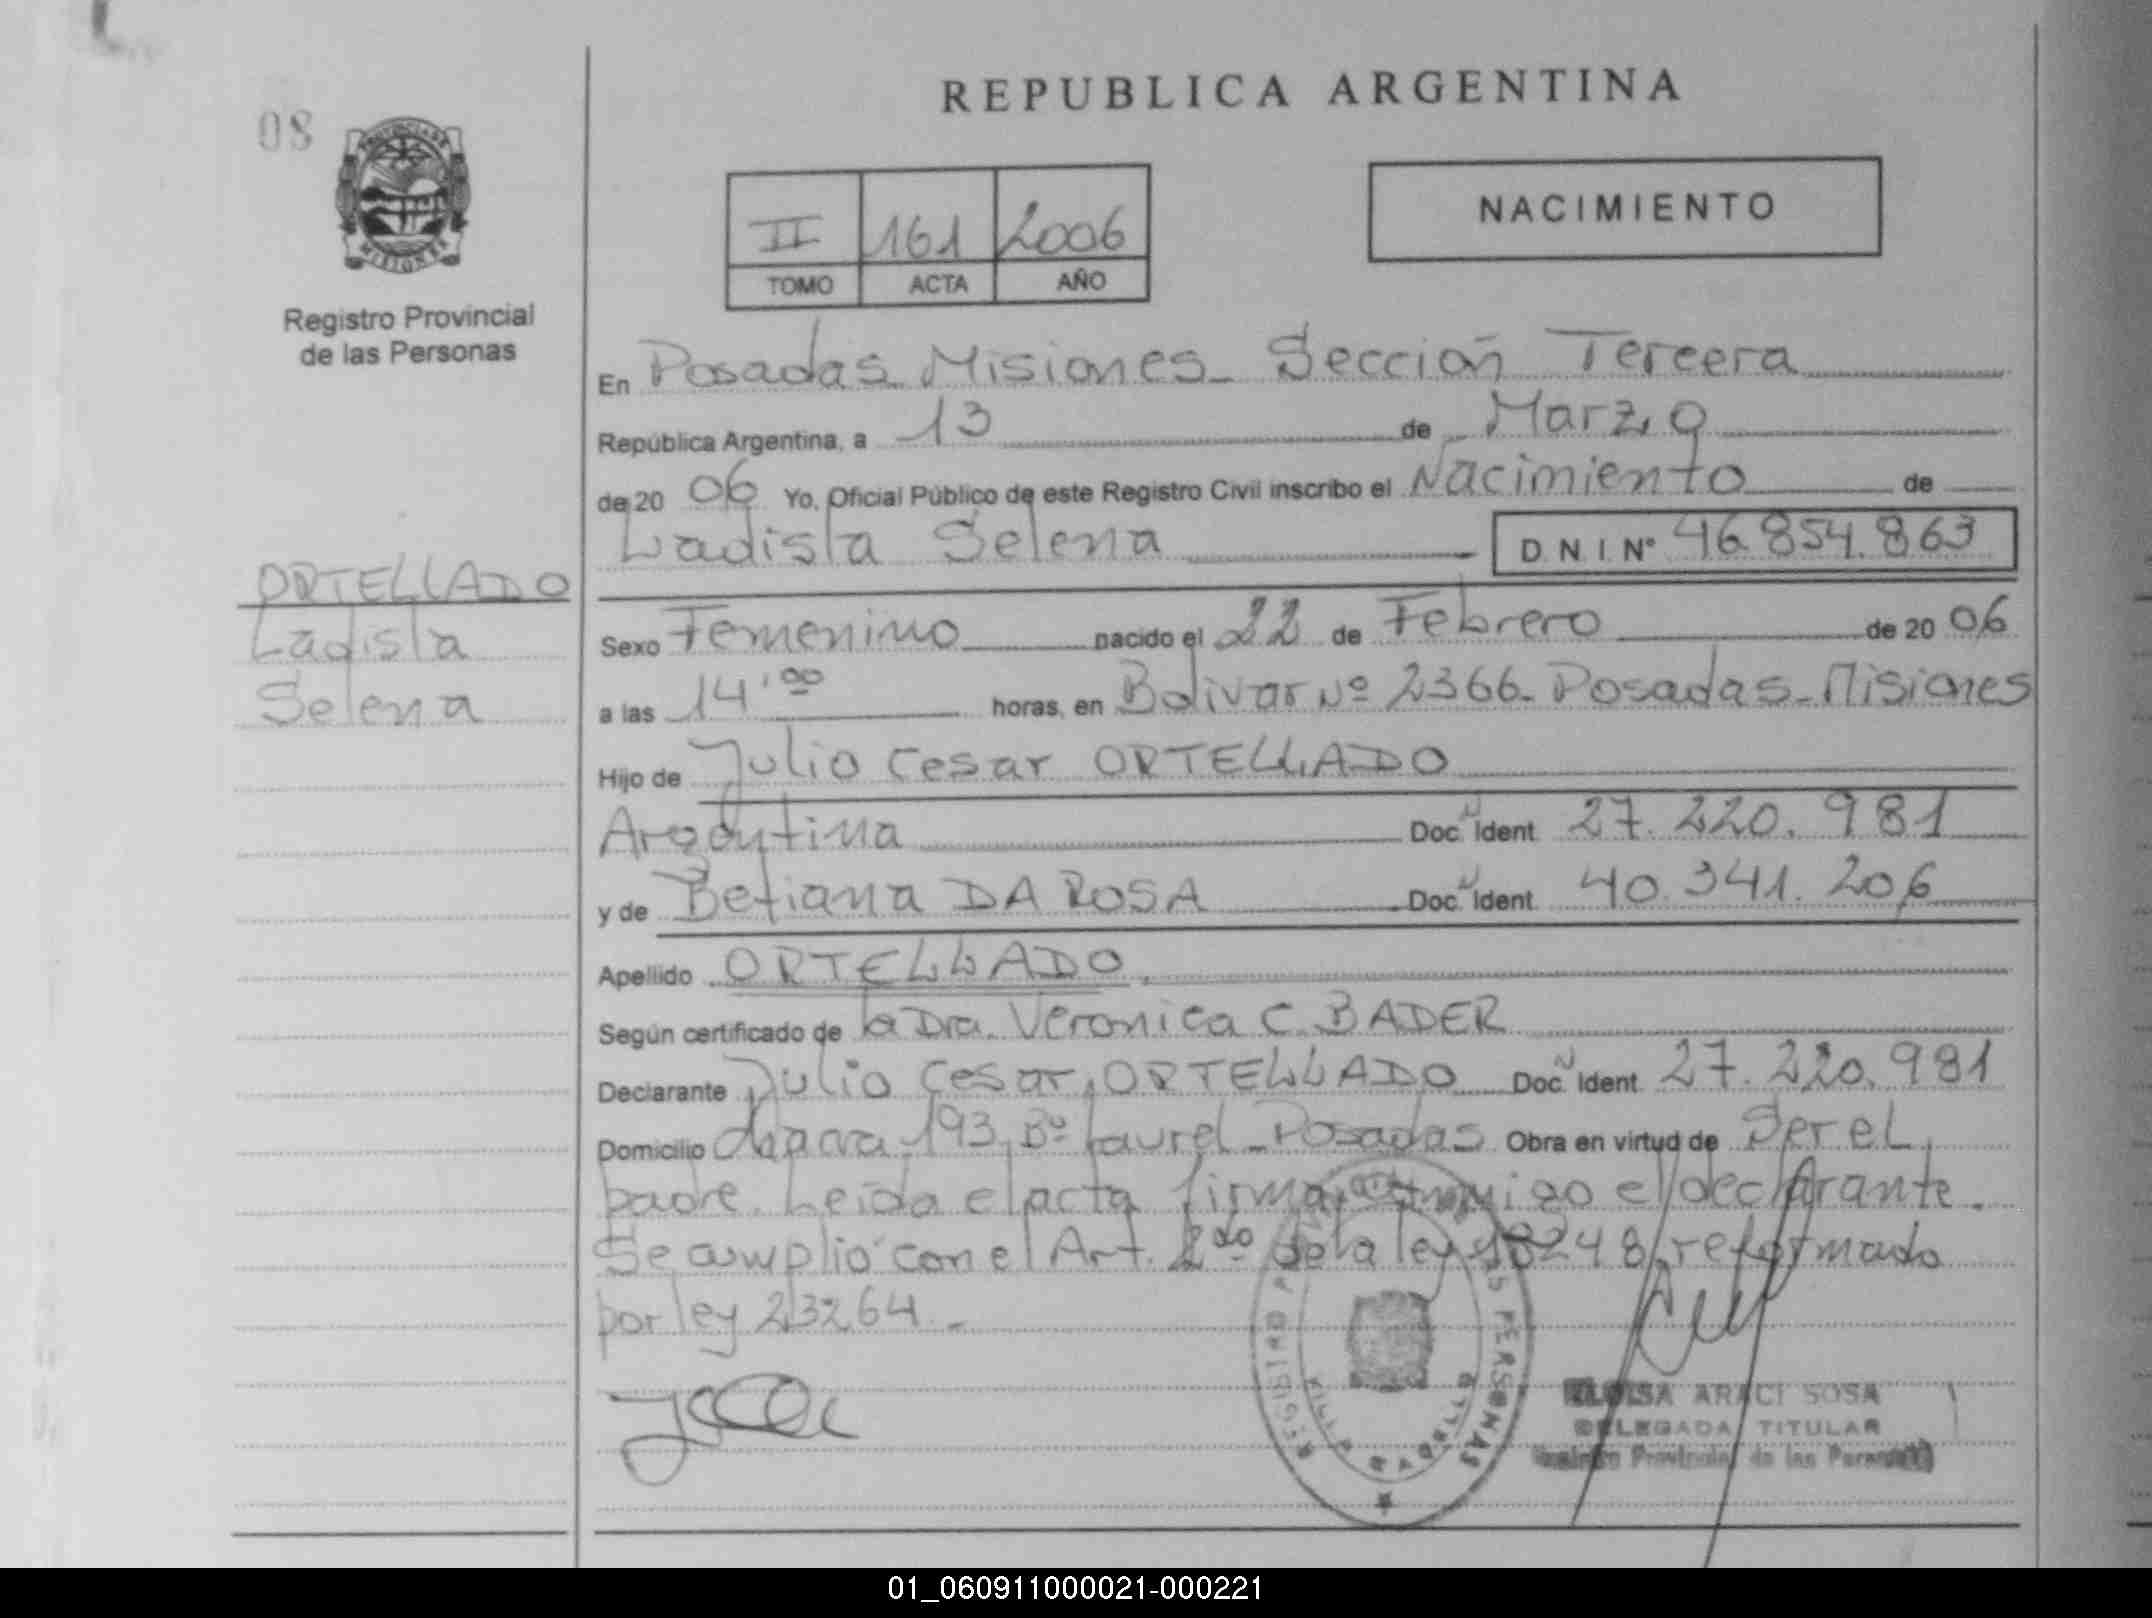 REPUBLICA ARGENTINA
08
PROVINCIA DE MISIONES
Registro Provincial
de las Personas
II 161 2006
TOMO ACTA AÑO
NACIMIENTO
En Posadas Misiones - Sección Tercera
República Argentina, a 13 de Marzo
de 20 06 Yo, Oficial Público de este Registro Civil inscribo el Nacimiento de
Ladisla Selena D.N.I. Nº 46.854.863
ORTELLADO
Ladisla
Selena
Sexo Femenino nacido el 22 de Febrero de 20 06
a las 14,00 horas, en Bolivar Nº 2366 - Posadas - Misiones
Hijo de Julio Cesar ORTELLADO
Argentina Doc. Ident 27.220.981
y de Betiana DA ROSA Doc. Ident 40.341.206
Apellido ORTELLADO.
Según certificado de la Dra. Veronica C. BADER
Declarante Julio Cesar ORTELLADO Doc. Ident. 27.220.981
Domicilio chacra 193 Bº Laurel - Posadas Obra en virtud de Ser el
padre. Leída el acta firma conmigo el declarante.
Se cumplió con el Art. 2do de la ley 18248 reformado
por ley 23264 -
ARACI SOSA
DELEGADA TITULAR
Provincial de las Personas
01_060911000021-000221